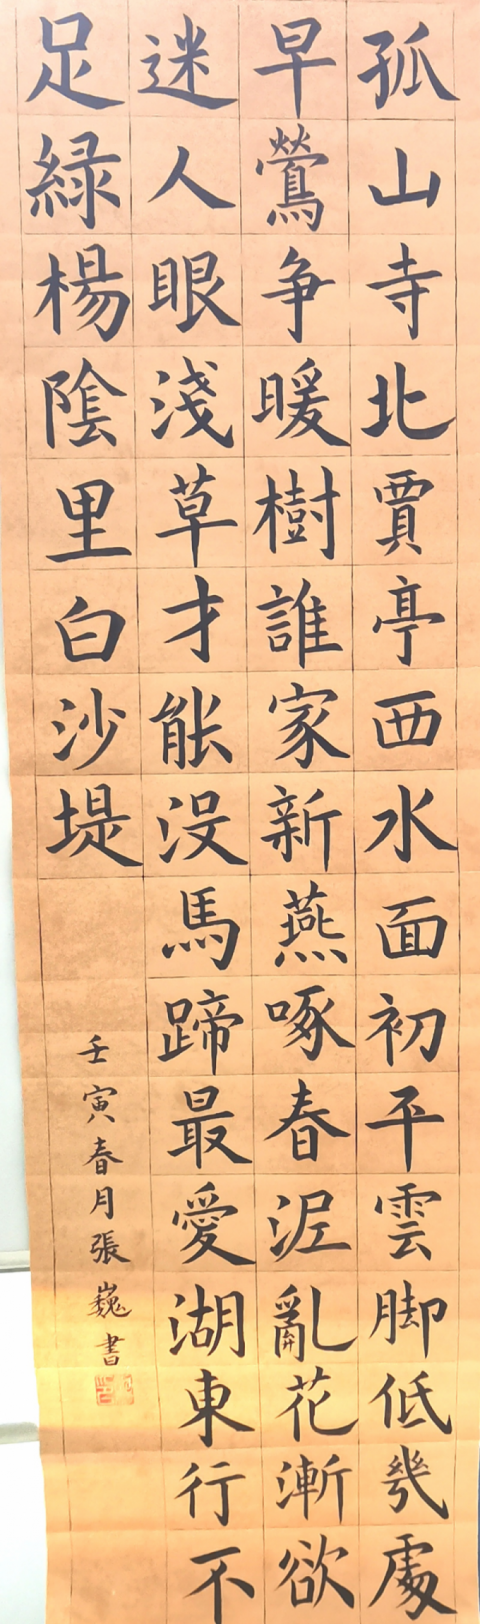 孤山寺北賈亭西水面初平雲脚低幾處
早鶯争暖樹誰家新燕啄春泥亂花漸欲
迷人眼淺草才能没馬蹄最愛湖東行不
足綠楊陰里白沙堤
壬寅春月張巍書